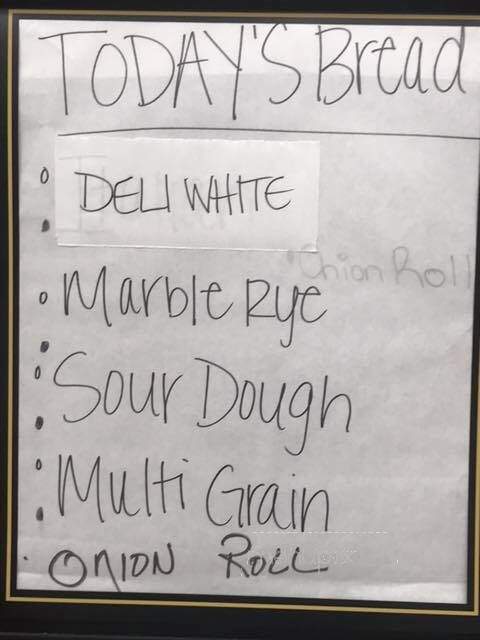 TODAY'S Bread
DELI WHITE
Onion Roll
Marble Rye
Sour Dough
Multi Grain
ONION ROLL